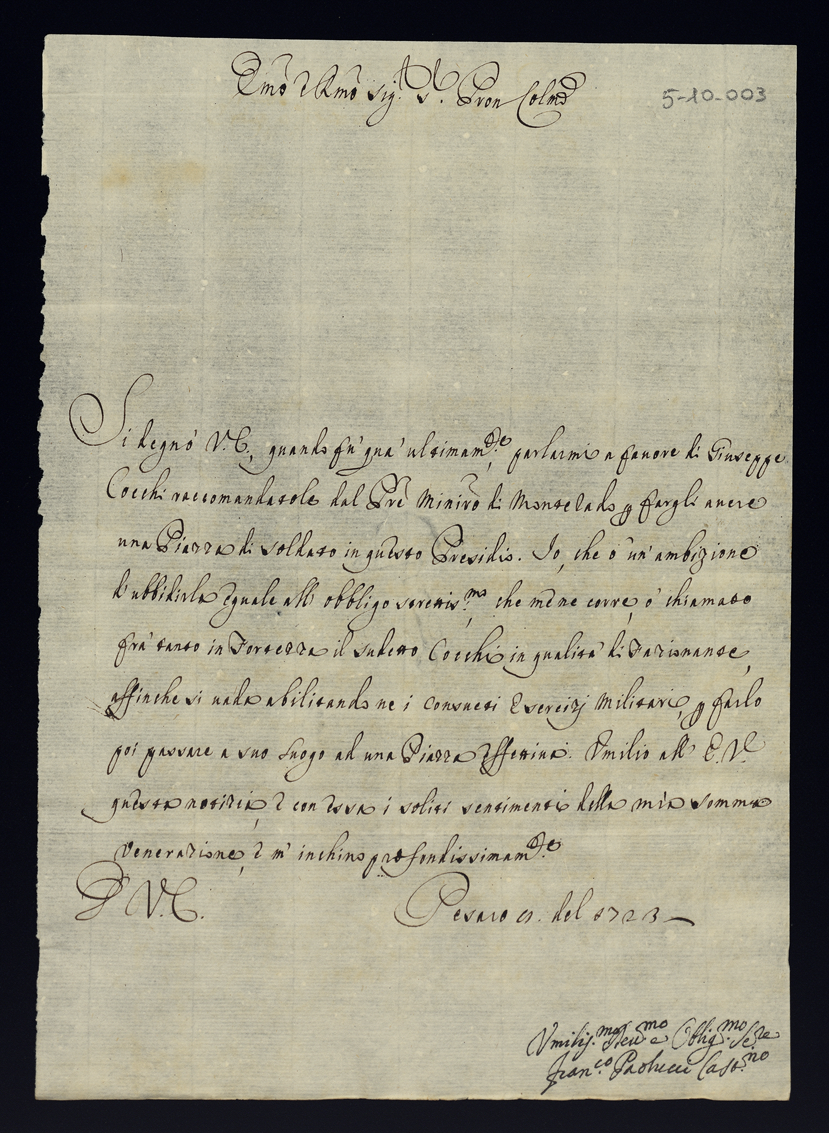 Emo e Rmo Sig.r S.r Pron Colmo
5-10-003
Si degnò V.E., quando fù quà ultimam.te, parlarmi a favore di Giuseppe
Cocchi raccomandatole dal Pre Miniro di Montelado p fargli avere
una Piazza di soldato in questo Presidio. Io, che ò un'ambizione
d'ubbidirla eguale all'obbligo strettis.mo che mene corre, ò chiamato
frà tanto in Fortezza il sudetto Cocchi in qualità di Tazionante,
affinche si vada abilitando ne i consueti Esercizj Militari, p farlo
poi passare a suo luogo ad una Piazza effettiva. Umilio all'E.V.
questa notizia, e con essa i soliti sentimenti della mia somma
venerazione, e m'inchino profondissimam.te
D V.E.
Pesaro del 1723
Vmilis.mo Dev.mo e Oblig.mo Se.re
Fran.co Paolucci Cast.no